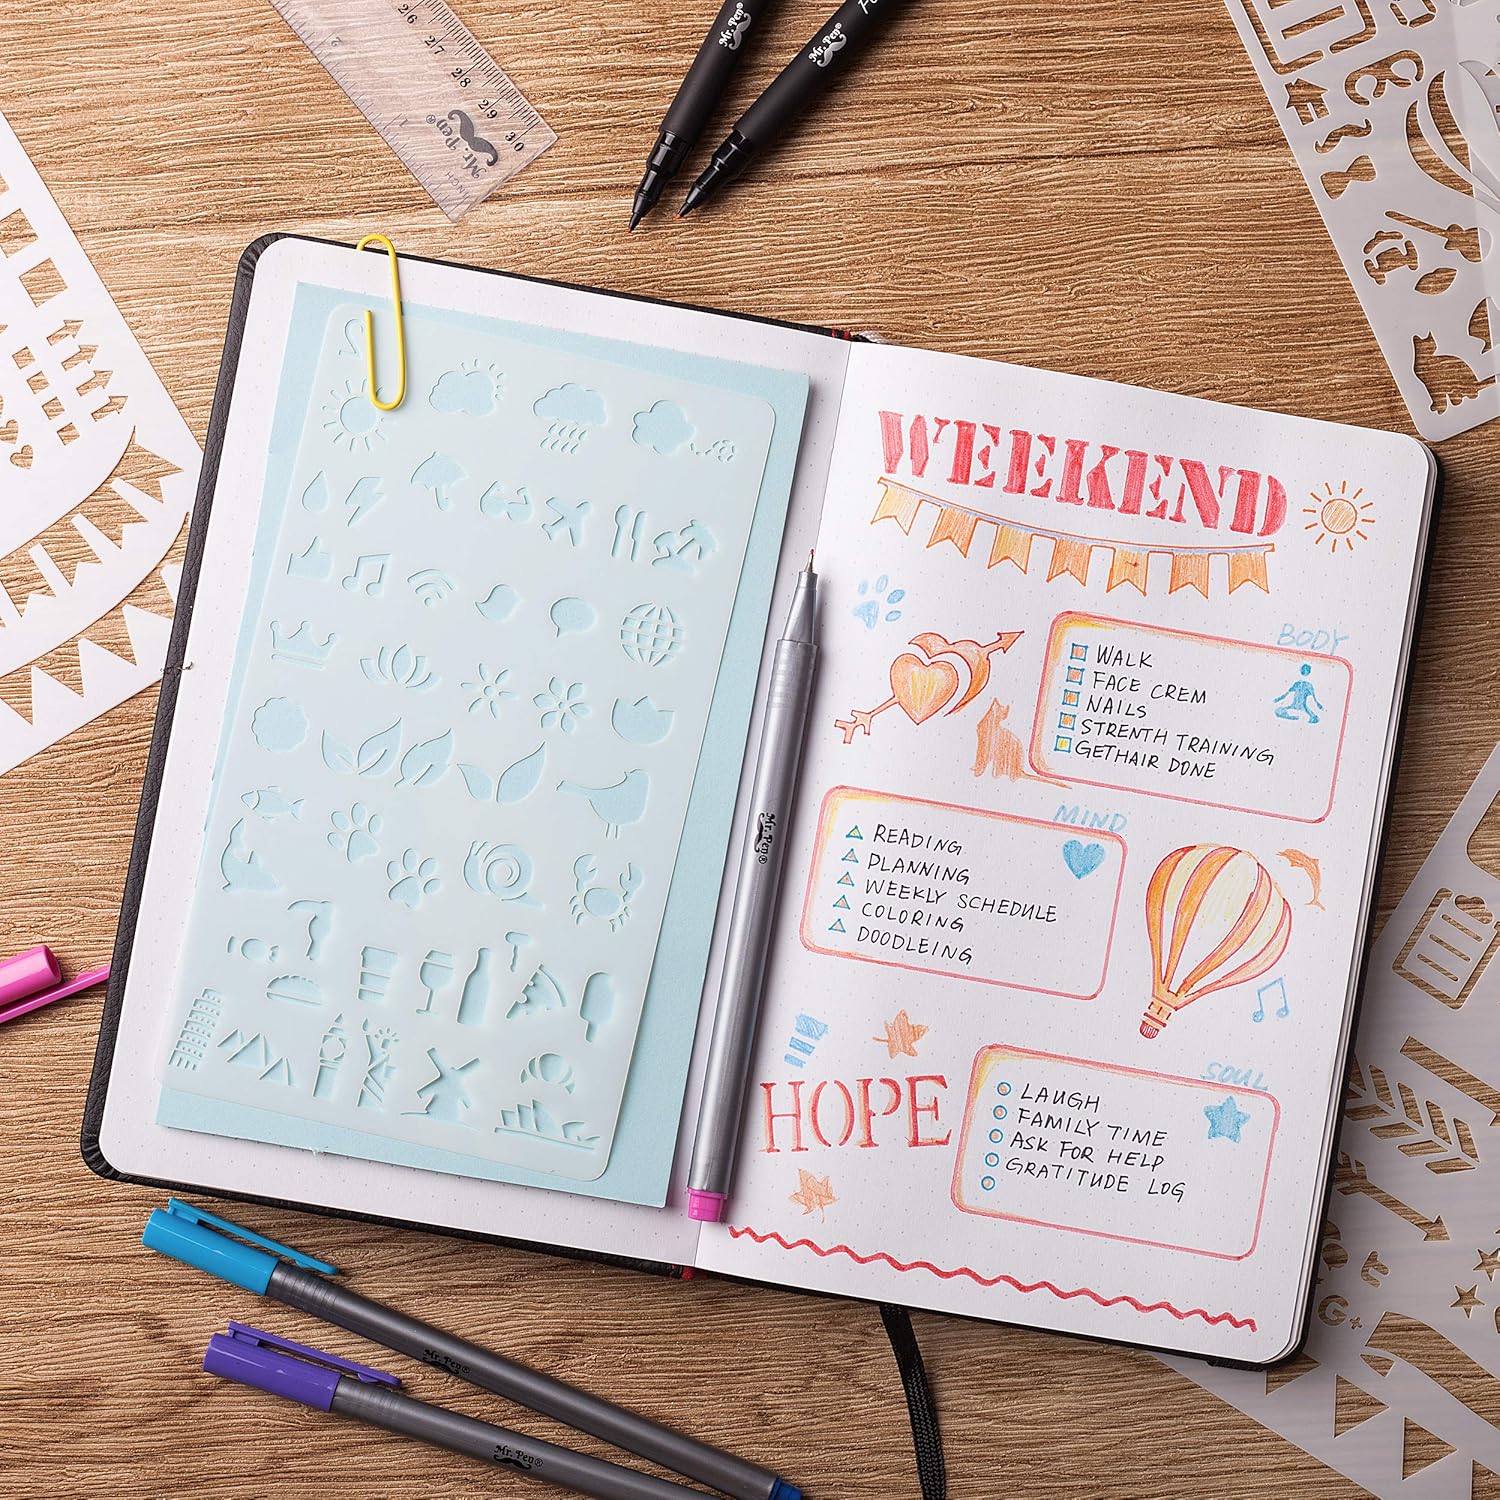 26 27 28 29 30
Mr. Pen®
INCH
Mr. Pen®
Mr. Pen®
WEEKEND
BODY
WALK
FACE CREM
NAILS
STRENTH TRAINING
GETHAIR DONE
MIND
READING
PLANNING
WEEKLY SCHEDULE
COLORING
DOODLEING
Mr. Pen®
HOPE
SOUL
LAUGH
FAMILY TIME
ASK FOR HELP
GRATITUDE LOG
Mr. Pen®
Mr. Pen®